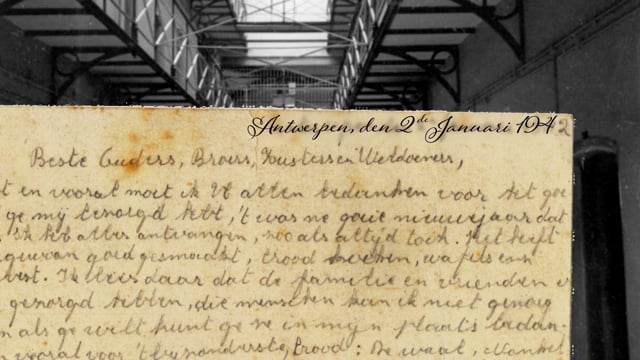 Antwerpen, den 2de Januari 1942
Beste Ouders, Broers, Zusters en Weldoeners,
t en vooral moet ik U allen bedanken voor het goe
ge mij bezorgd hebt, 't was ne goeie nieuwejaar dat
Ik heb alles ontvangen, zooals altijd toch. Het heeft
gewoon goed gesmaakt, brood koeken, wafels enn
best. Ik lees daar dat de familie en vrienden
gezorgd hebben, die menschen kan ik niet genoeg
n als ge wilt kunt ge ze in mijn plaats bedan-
vooral voor 't bijzonderste, brood: De waal,